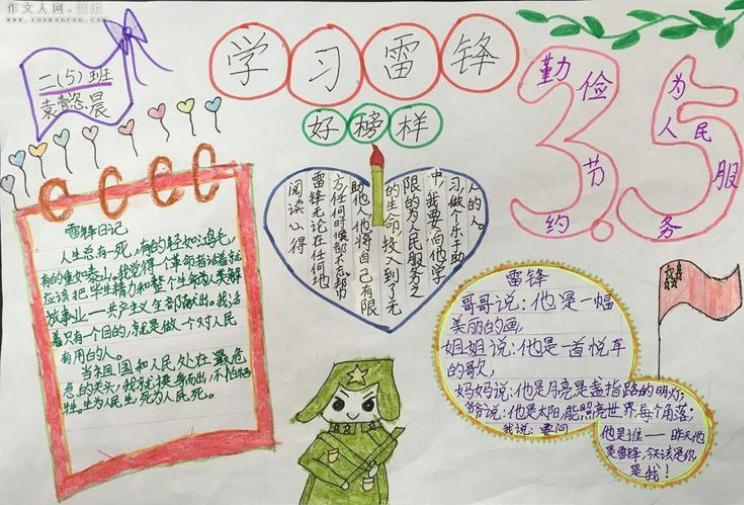 作文人网
www.zuowenren.com
二(5)班
袁懿晨
学习雷锋
好榜样
3.5
勤俭节约
为人民服务
雷锋日记
人生总有一死,有的轻如鸿毛,
有的重如泰山。我觉得一个革命者活着就
应该把毕生精力和整个生命为人类解
放事业——共产主义全部献出。我活
着只有一个目的,就是做一个对人民
有用的人。
当祖国和人民处在最危
急的关头,我就挺身而出,不怕牺
牲。生为人民生,死为人民死。
阅读心得
雷锋无论在任何地
方任何时候都不忘帮
助他人他将自己有限
的生命,投入到了无
限的为人民服务之
中,我要向他学
习,做个乐于助
人的人。
雷锋
哥哥说:他是一幅
美丽的画,
姐姐说:他是一首悦耳
的歌,
妈妈说:他是月亮是盏指路的明灯;
爷爷说:他是太阳,能照亮世界每个角落;
我说:要问
他是谁——昨天他
是雷锋,今天该是你
是我!